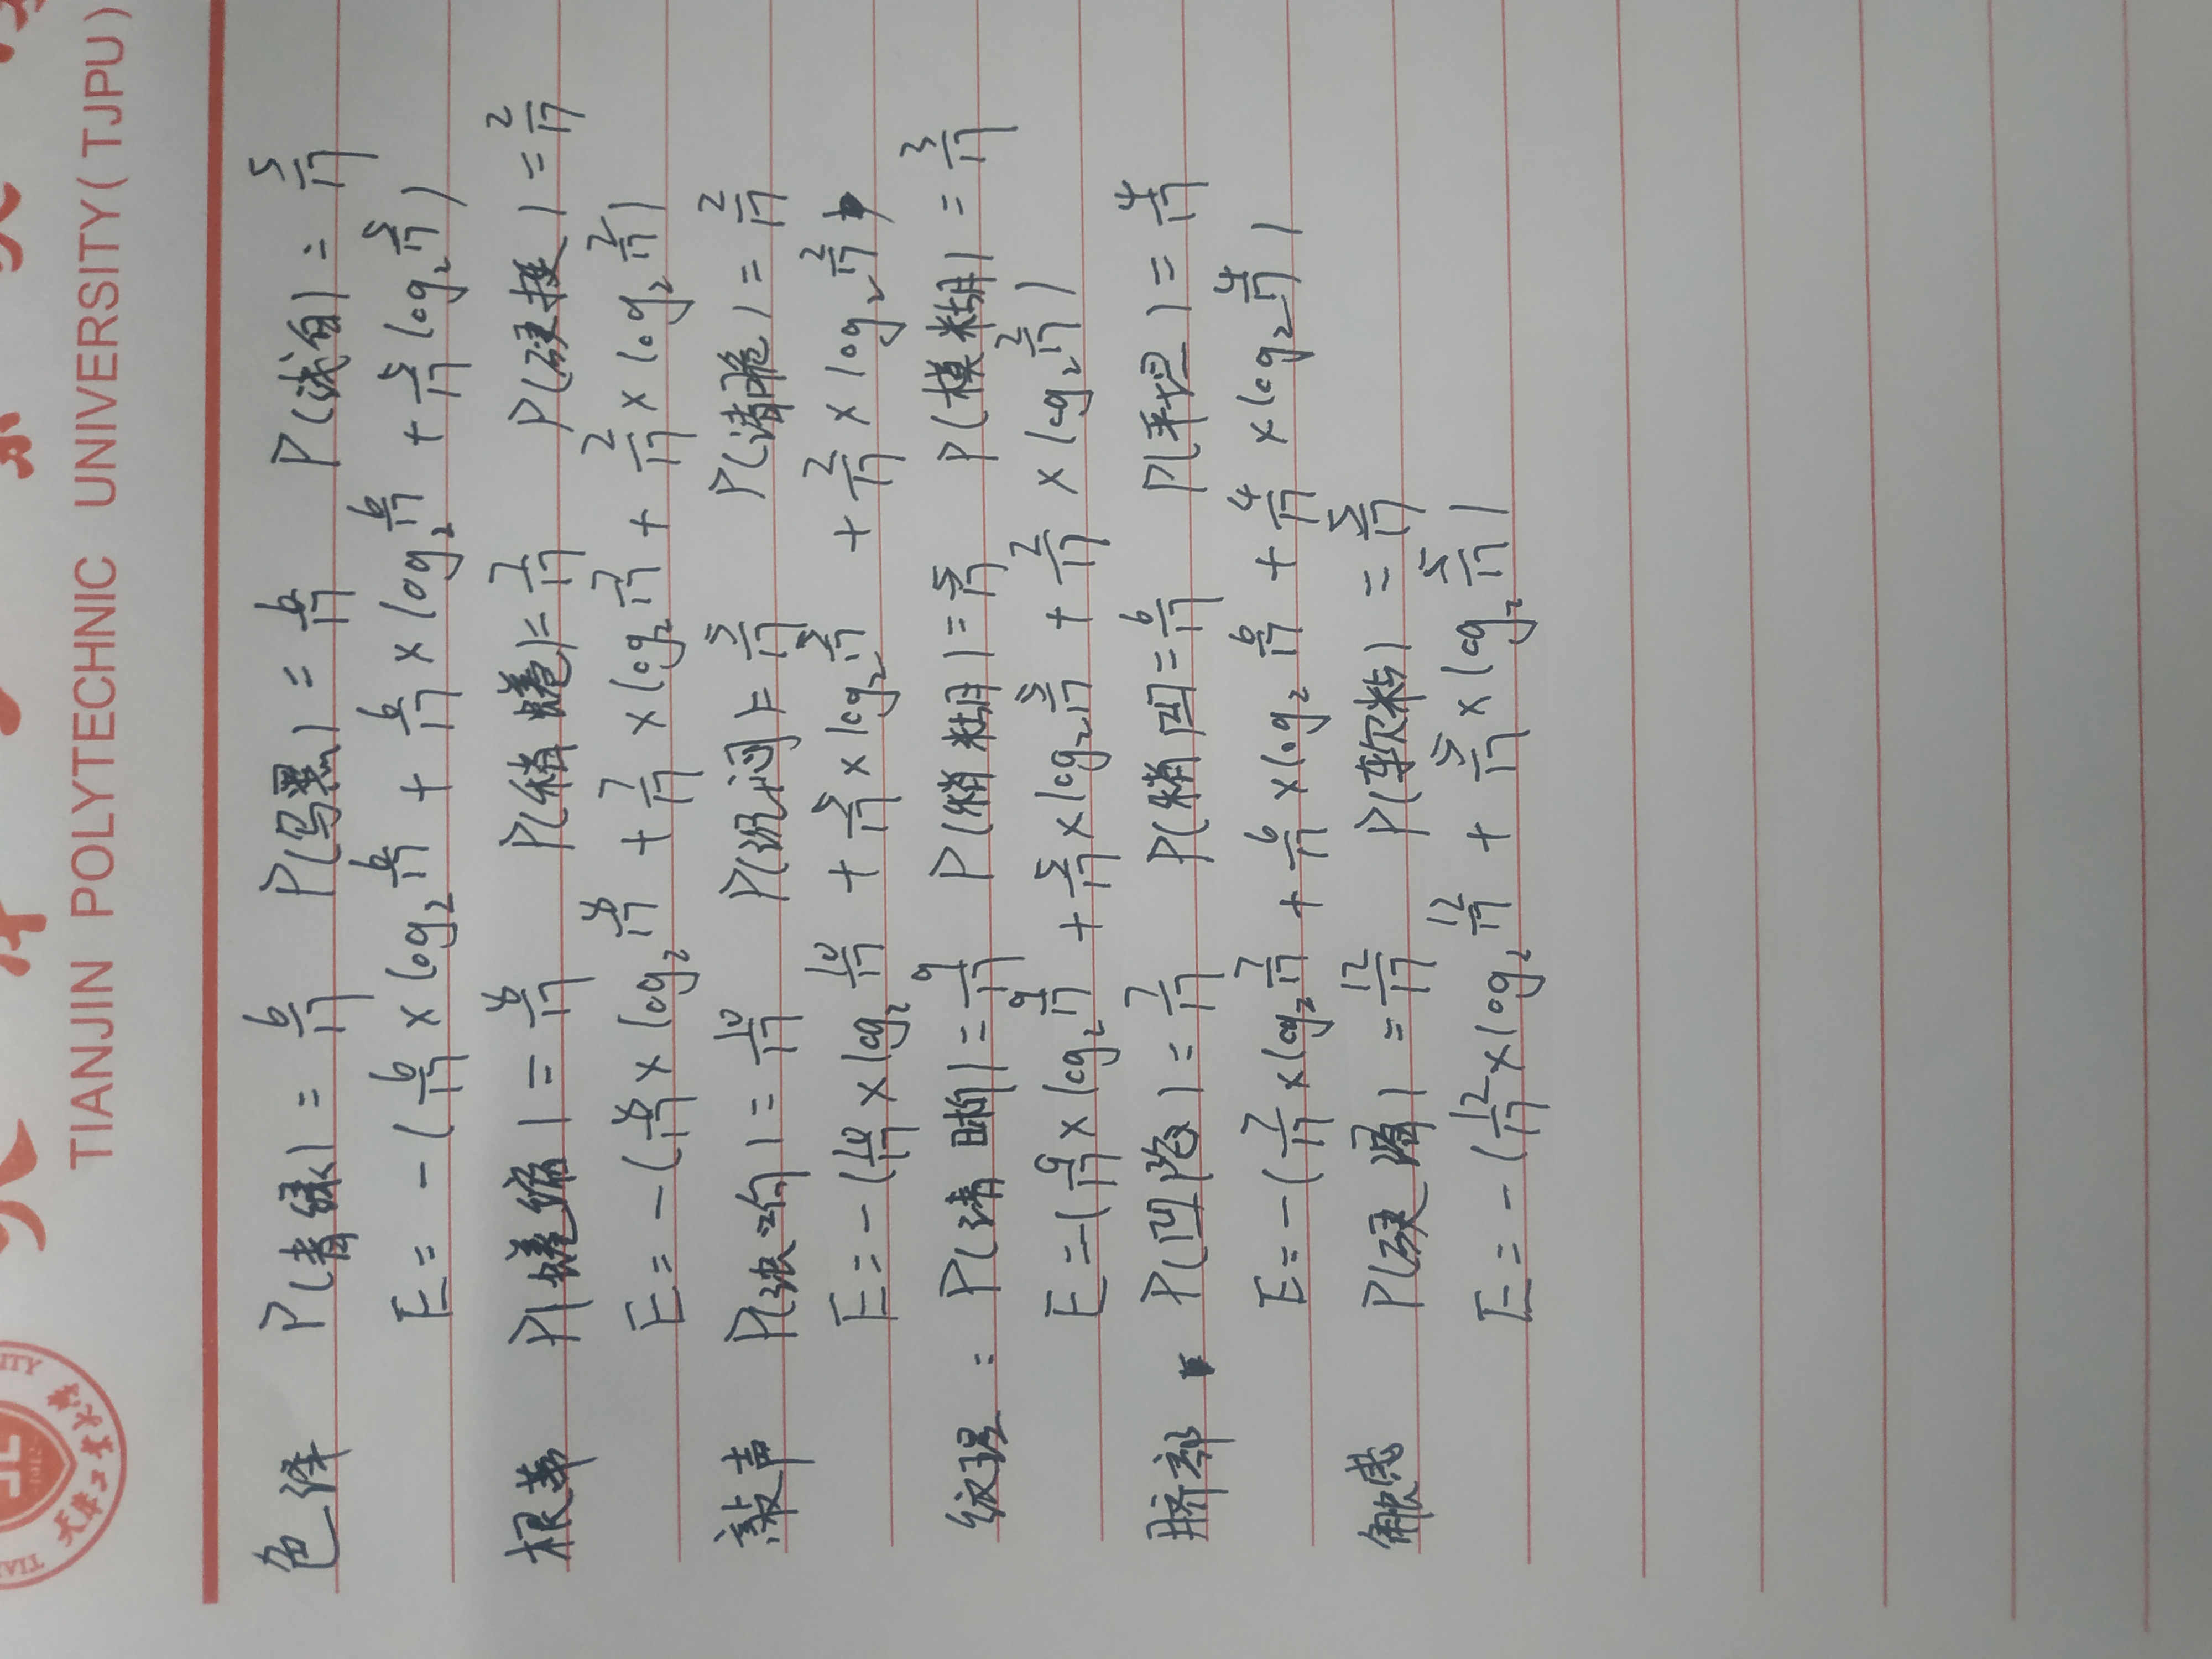 1912
天津工业大学
TIANJIN POLYTECHNIC UNIVERSITY(TJPU)
色泽 P(青绿)=6/17 P(乌黑)=6/17 P(浅白)=5/17
E=-(6/17×log₂6/17+6/17×log₂6/17+5/17log₂5/17)
根蒂 P(蜷缩)=8/17 P(稍蜷)=7/17 P(硬挺)=2/17
E=-(8/17×log₂8/17+7/17×log₂7/17+2/17×log₂2/17)
敲声 P(浊响)=10/17 P(沉闷)=5/17 P(清脆)=2/17
E=-(10/17×log₂10/17+5/17×log₂5/17+2/17×log₂2/17)
纹理: P(清晰)=9/17 P(稍糊)=5/17 P(模糊)=3/17
E=-(9/17×log₂9/17+5/17×log₂5/17+2/17×log₂2/17)
脐部 P(凹陷)=7/17 P(稍凹=6/17 P(平坦)=4/17
E=-(7/17×log₂7/17+6/17×log₂6/17+4/17×log₂4/17)
触感 P(硬滑)=12/17 P(软粘)=5/17
E=-(12/17×log₂12/17+5/17×log₂5/17)